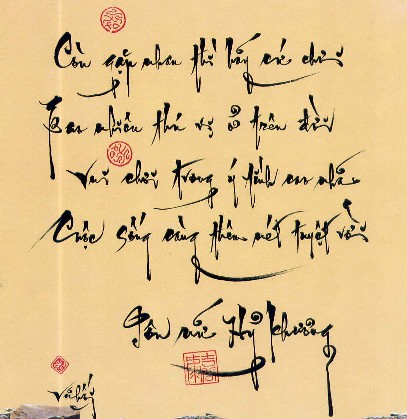 Còn gặp nhau thì hãy cứ chơi
Bao nhiêu thú vị ở trên đời
Vui chơi trong ý tình cao nhã
Cuộc sống càng thêm nét tuyệt vời
Tôn nữ Hỷ Khương